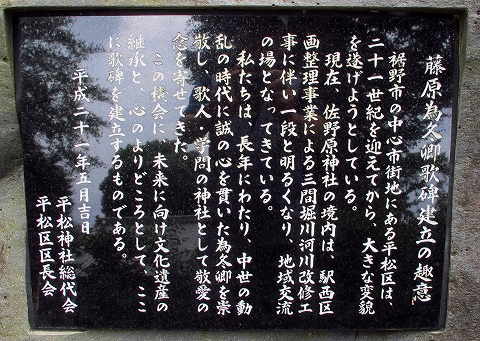 藤原為冬卿歌碑建立の趣意
裾野市の中心市街地にある平松区は、
二十一世紀を迎えてから、大きな変貌
を遂げようとしている。
現在、佐野原神社の境内は、駅西区
画整理事業による三間堀川河川改修工
事に伴い一段と明るくなり、地域交流
の場となってきている。
私たちは、長年にわたり、中世の動
乱の時代に誠の心を貫いた為冬卿を崇
敬し、歌人・学問の神社として敬愛の
念を寄せてきた。
この機会に、未来に向け文化遺産の
継承と、心のよりどころとして、ここ
に歌碑を建立するものである。
平成二十一年五月吉日
平松神社総代会
平松区区長会